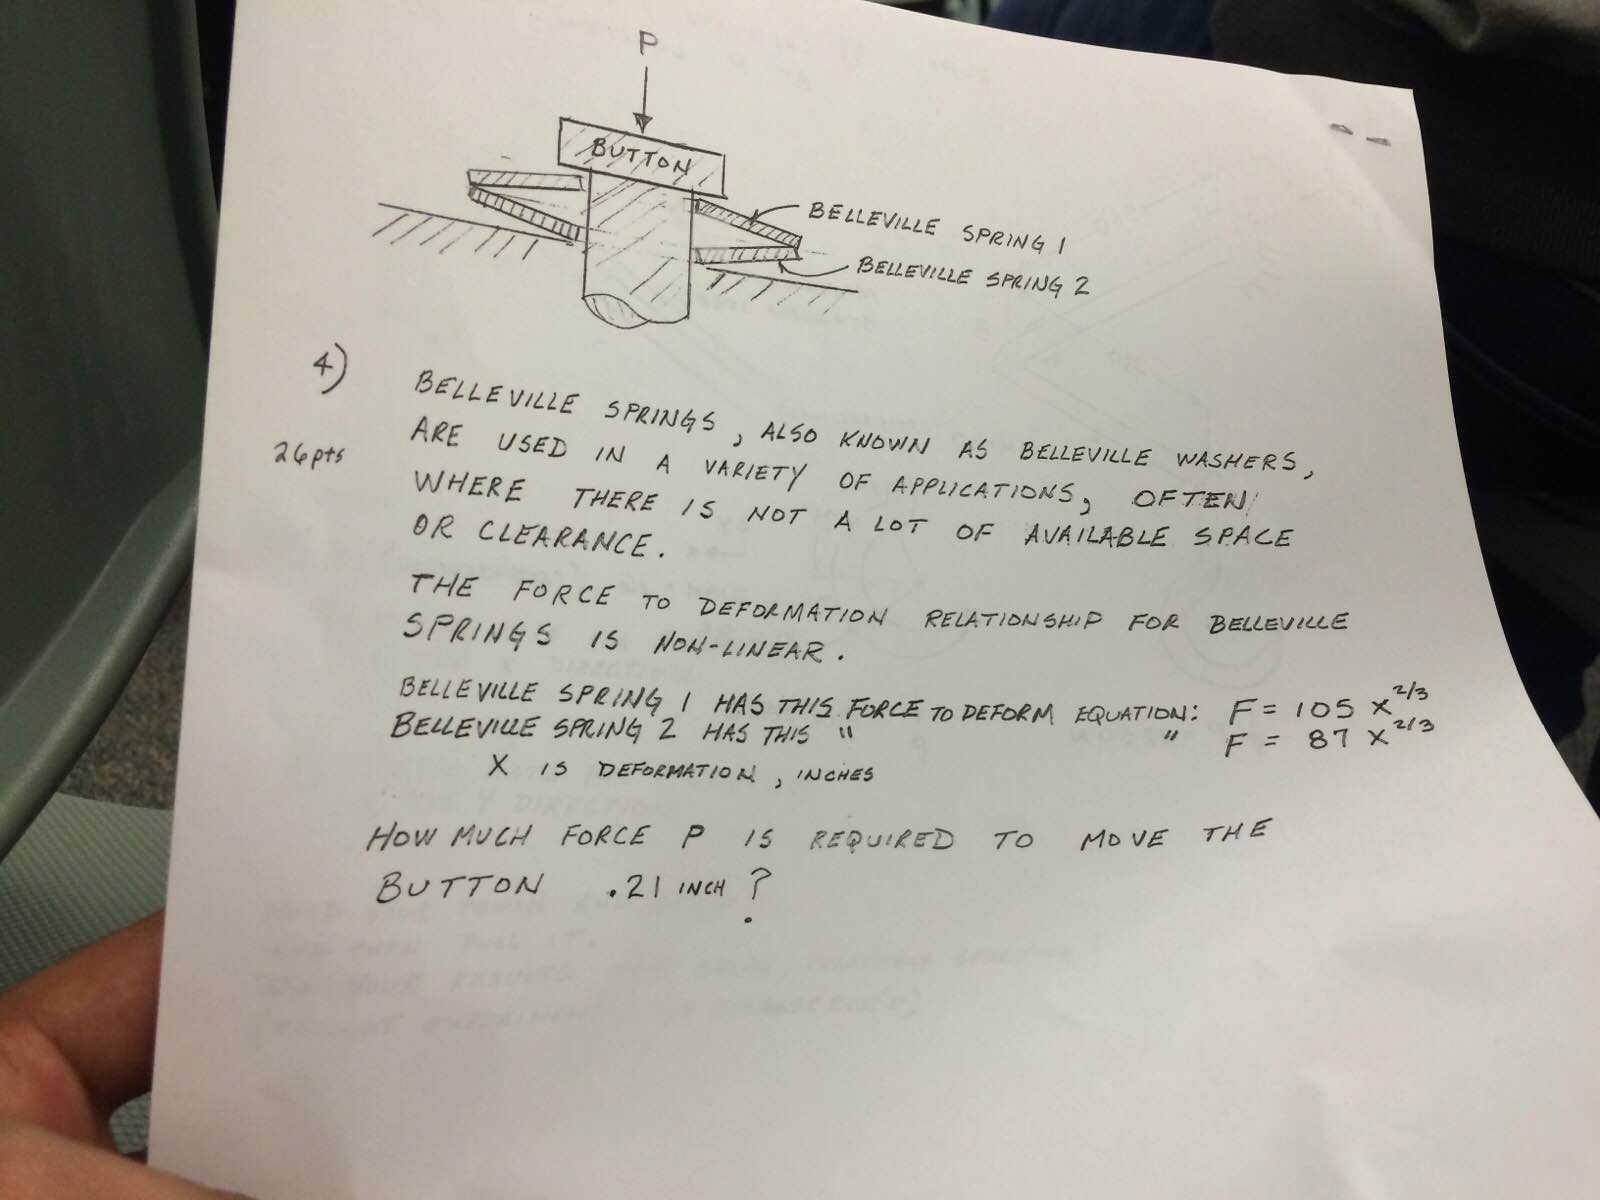 P
BUTTON
BELLEVILLE SPRING 1
BELLEVILLE SPRING 2
4)
26pts
BELLEVILLE SPRINGS, ALSO KNOWN AS BELLEVILLE WASHERS,
ARE USED IN A VARIETY OF APPLICATIONS, OFTEN
WHERE THERE IS NOT A LOT OF AVAILABLE SPACE
OR CLEARANCE.
THE FORCE TO DEFORMATION RELATIONSHIP FOR BELLEVILLE
SPRINGS IS NON-LINEAR.
BELLEVILLE SPRING 1 HAS THIS FORCE TO DEFORM EQUATION: F = 105 X^2/3
BELLEVILLE SPRING 2 HAS THIS " " F = 87 X^2/3
X IS DEFORMATION, INCHES
HOW MUCH FORCE P IS REQUIRED TO MOVE THE
BUTTON .21 INCH ?